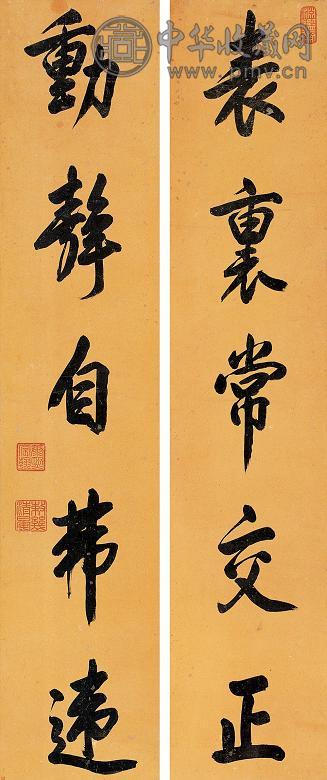 中华收藏网
www.pmv.cn
表裏常交正
動靜自弗違